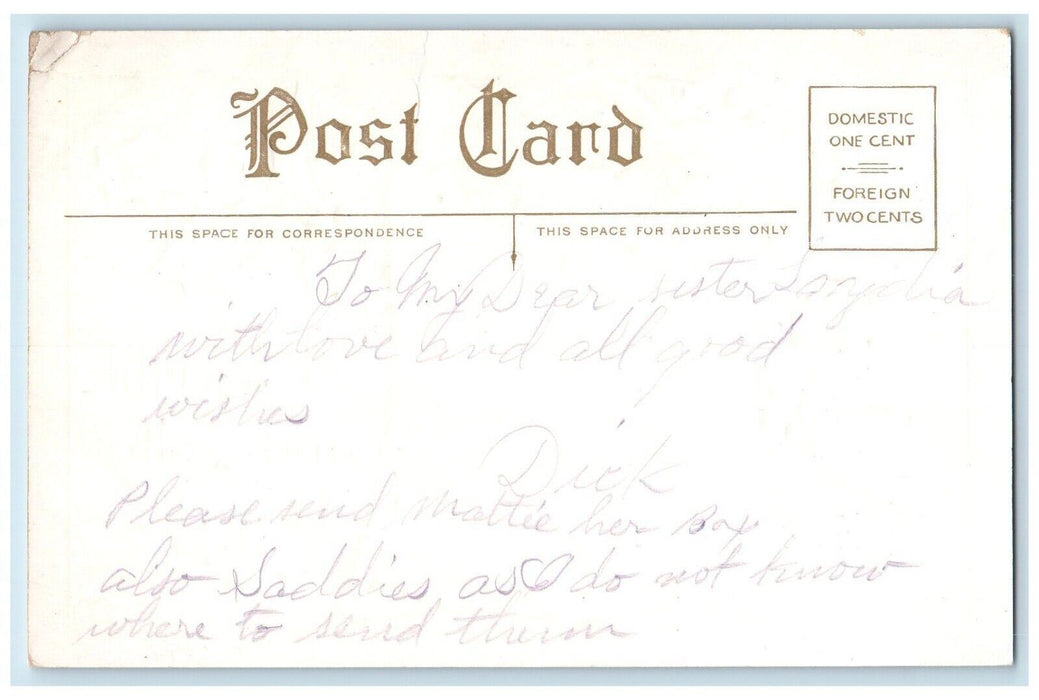 Post Card
DOMESTIC
ONE CENT
FOREIGN
TWO CENTS
THIS SPACE FOR CORRESPONDENCE
THIS SPACE FOR ADDRESS ONLY
To My Dear sister
with love and all good
wishes
Dick
Please send Mattie her Box
also Saddies as I do not know
where to send them